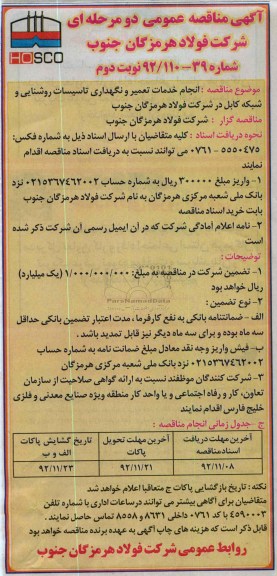 آگهی مناقصه عمومی دو مرحله ای
شرکت فولاد هرمزگان جنوب
شماره ۳۹-۹۲/۱۱۰ نوبت دوم
HOSCO
موضوع مناقصه : انجام خدمات تعمیر و نگهداری تاسیسات روشنایی و
شبکه کابل در شرکت فولاد هرمزگان جنوب
مناقصه گزار : شرکت فولاد هرمزگان جنوب
نحوه دریافت اسناد : کلیه متقاضیان با ارسال اسناد ذیل به شماره فکس:
۵۵۵۰۴۷۵ - ۰۷۶۱ می توانند نسبت به دریافت اسناد مناقصه اقدام
نمایند
۱- واریز مبلغ ۳۰۰۰۰۰ ریال به شماره حساب ۰۲۱۵۳۶۷۴۶۲۰۰۲ نزد
بانک ملی شعبه مرکزی هرمزگان به نام شرکت فولاد هرمزگان جنوب
بابت خرید اسناد مناقصه
۲- نامه اعلام آمادگی شرکت که در آن ایمیل رسمی آن شرکت ذکر شده
است
توضیحات :
۱- تضمین شرکت در مناقصه به مبلغ: ۱/۰۰۰/۰۰۰/۰۰۰ (یک میلیارد)
ریال خواهد بود
۲- نوع تضمین :
الف - ضمانتنامه بانکی به نفع کارفرما ، مدت اعتبار تضمین بانکی حداقل
سه ماه بوده و برای سه ماه دیگر نیز قابل تمدید باشد .
ب- فیش واریز وجه نقد معادل مبلغ ضمانت نامه به شماره حساب
۰۲۱۵۳۶۷۴۶۲۰۰۲ نزد بانک ملی شعبه مرکزی هرمزگان
۳- شرکت کنندگان موظفند نسبت به ارائه گواهی صلاحیت از سازمان
تعاون، کار و رفاه اجتماعی و یا واحد کار منطقه ویژه صنایع معدنی و فلزی
خلیج فارس اقدام نمایند
ج -جدول زمانی انجام مناقصه :
آخرین مهلت دریافت اسناد مناقصه آخرین مهلت تحویل پاکات تاریخ گشایش پاکات الف و ب
۹۲/۱۱/۰۸ ۹۲/۱۱/۲۱ ۹۲/۱۱/۲۳
نکته : تاریخ بازگشایی پاکات ج متعاقبا اعلام خواهد شد
متقاضیان برای آگاهی بیشتر می توانند در ساعات اداری با شماره تلفن
۴۵۹۰۰۰۳ با کد ۰۷۶۱ داخلی ۸۶۳۱ و ۸۵۵۸ تماس حاصل نمایند .
قابل ذکر است که هزینه های چاپ آگهی به عهده برنده مناقصه خواهد بود
روابط عمومی شرکت فولاد هرمزگان جنوب